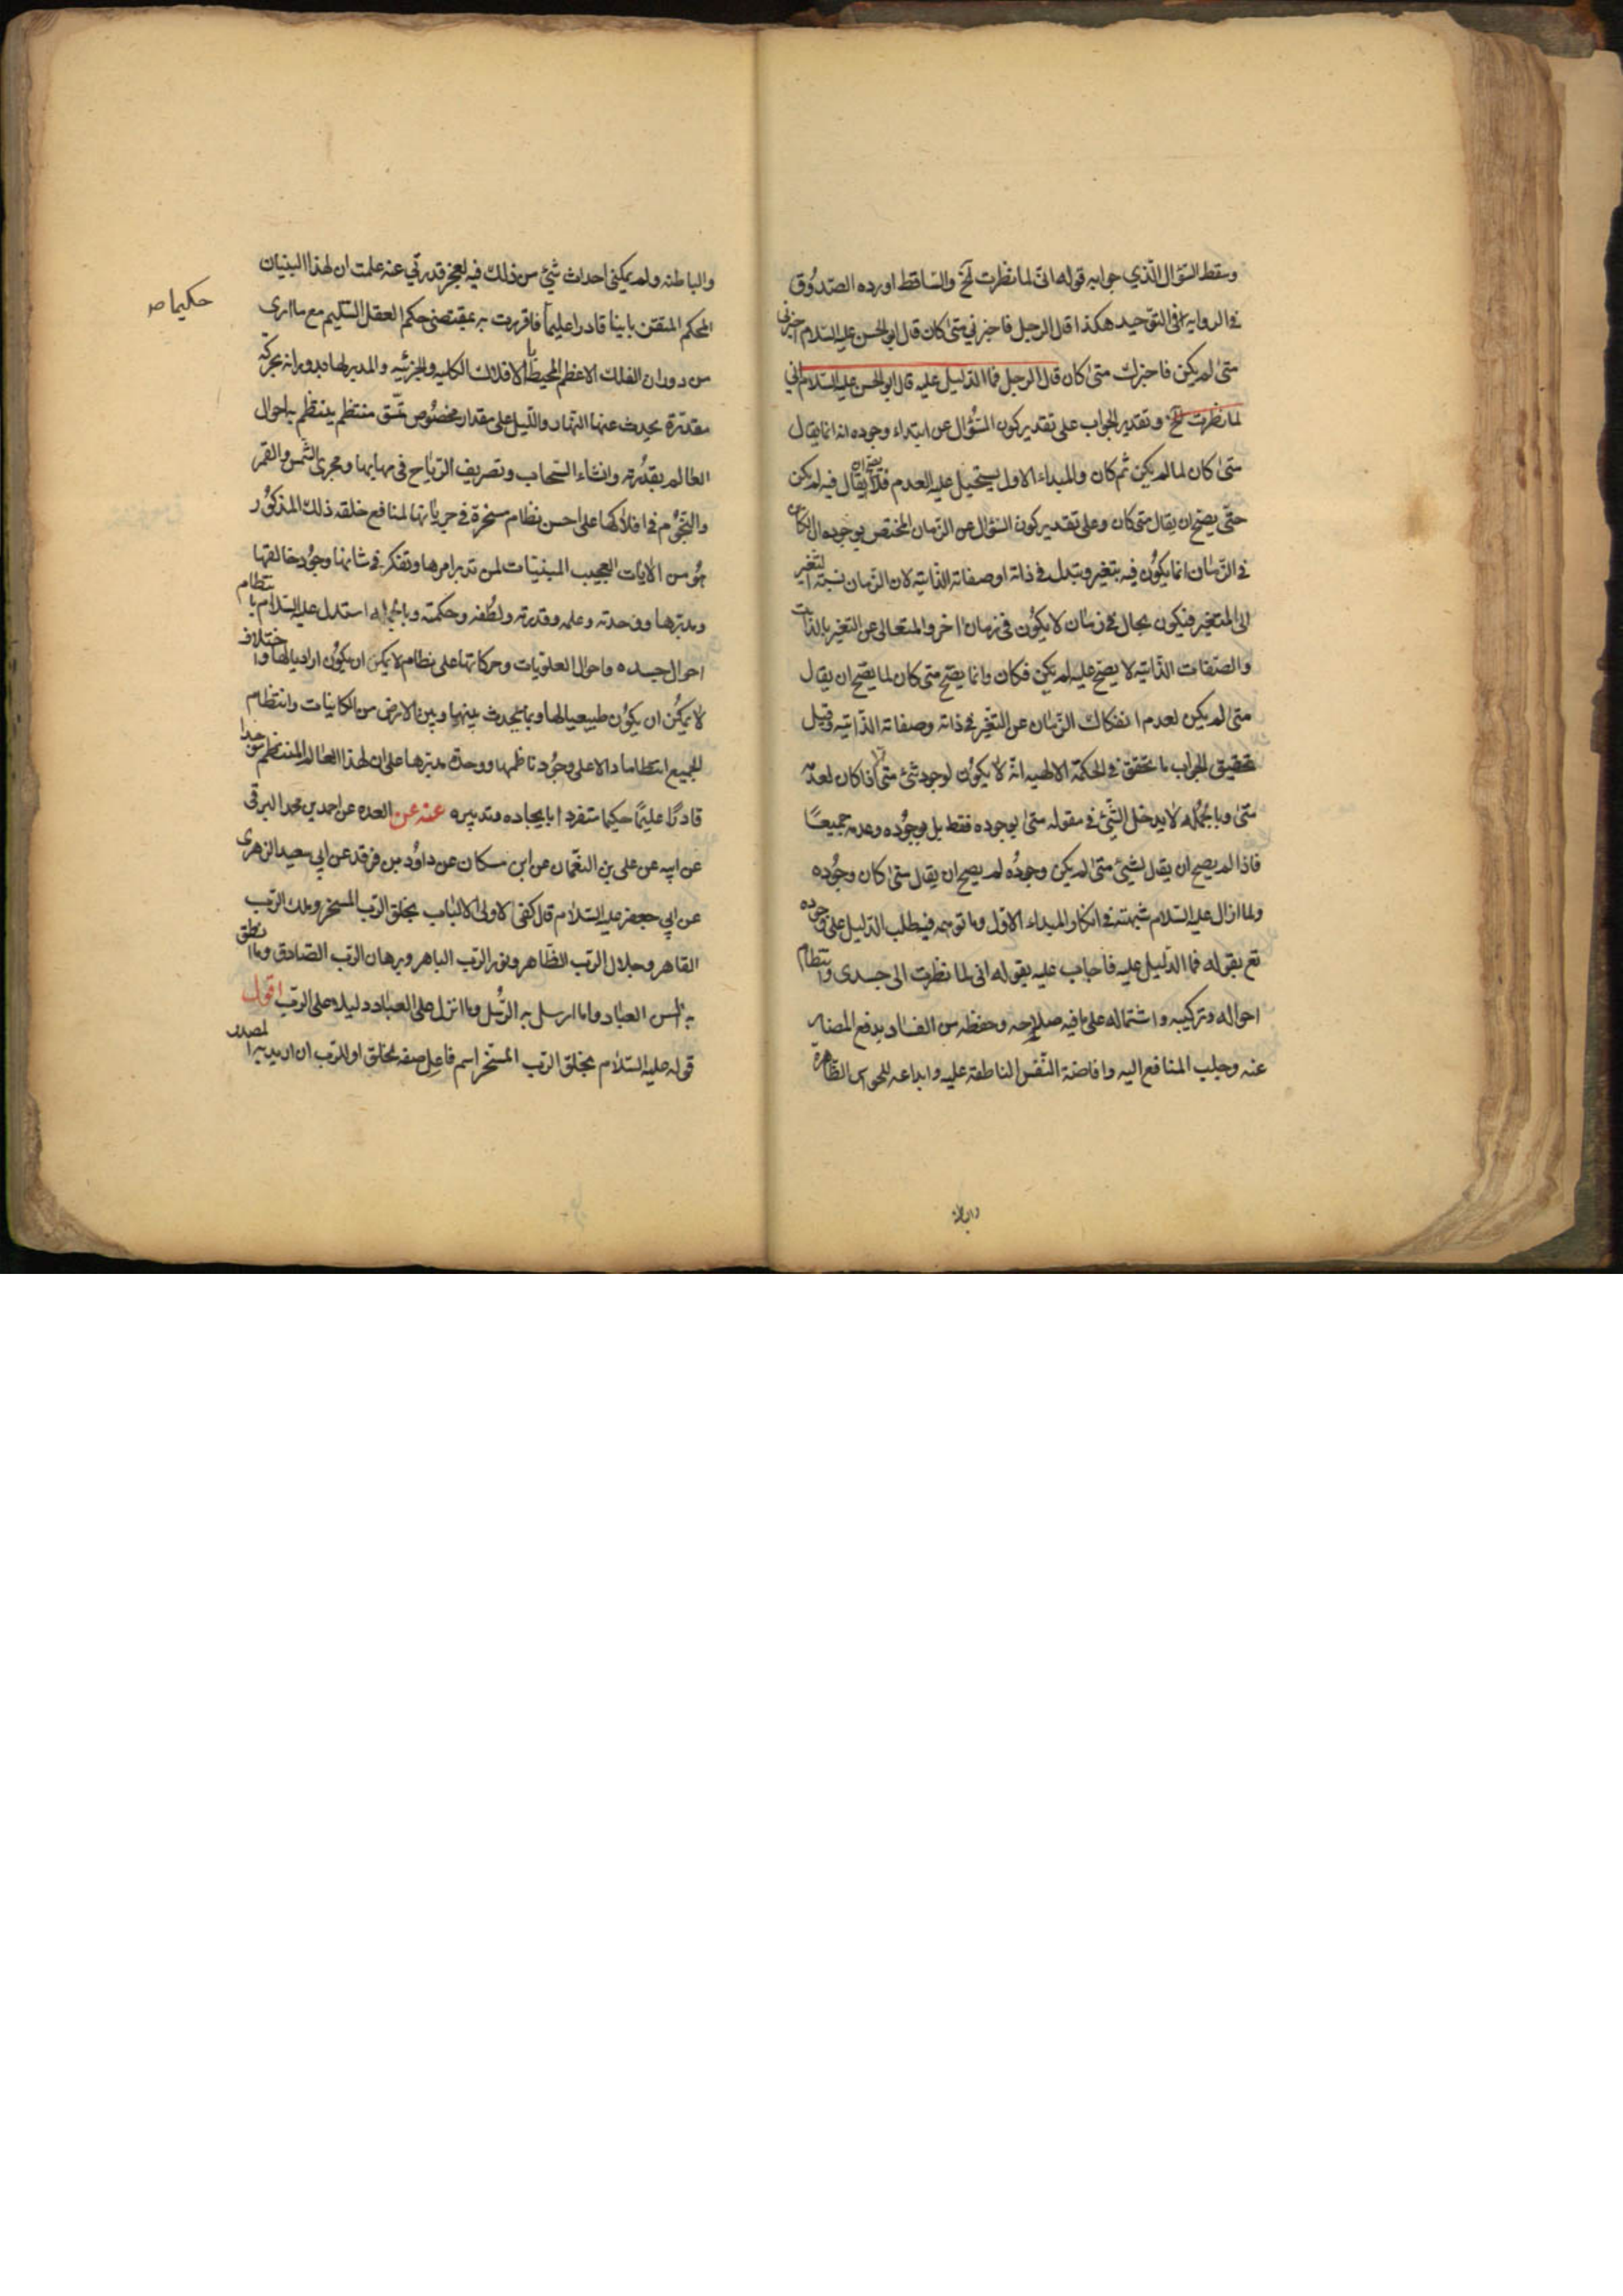 وسقط السؤال الذي جوابه قوله اني لما نظرت آلخ والساقط اورده الصدوق
في الروايه في التوحيد هكذا قال الرجل فاخبرني متى كان قال ابو الحسن عليه السلام اخبرني
متى لم يكن فاخبرك متى كان قال الرجل فما الدليل عليه قال ابو الحسن عليه السلام اني
لما نظرت آلخ وتقدير الجواب على تقدير كون السؤال عن ابتداء وجوده انه انما يقال
متى كان لما لم يكن ثم كان والمبداء الاول يستحيل عليه العدم فلا يصح ان يقال فيه لم يكن
حتى يصح ان يقال متى كان وعلى تقدير كون السؤال عن الزمان المختص بوجوده ان الكائن
في الزمان انما يكون فيه بتغير وتبدل في ذاته او صفاته الذاتيه لان الزمان نسبة التغير
الى المتغير فيكون بحال في زمان لا يكون في زمان اخر والمتعالى عن التغير بالذات
والصفات الذاتيه لا يصح عليه لم يكن فكان وانما يصح متى كان لما يصح ان يقال
متى لم يكن لعدم انفكاك الزمان عن التغير في ذاته وصفاته الذاتيه وقيل
تحقيق الجواب ما تحقق في الحكمة الالهيه انه لا يكون لوجود شئ متى الا اذا كان لعدمه
متى وبالجمله لا يدخل الشئ في مقوله متى بوجوده فقط بل بوجوده وعدمه جميعا
فاذا لم يصح ان يقال لشيئ متى لم يكن وجوده لم يصح ان يقال متى كان وجوده
ولما ازال عليه السلام شبهته في انكار المبداء الاول وما توهمه فيطلب الدليل على وجوده
تع بقوله فما الدليل عليه فاجاب عليه بقوله انى لما نظرت الى جسدى وانتظام
احواله وتركيبه واشتماله على ما فيه صلاحه وحفظه من الفساد بدفع المضار
عنه وجلب المنافع اليه وافاضة النفس الناطقة عليه وابداعه للحواس الظاهرة
والباطنه
والباطنه ولم يمكني احداث شئ من ذلك فيه لعجز قدرتي عنه علمت ان لهذا البنيان
المحكم المتقن بانيا قادرا عليما فاقررت به بمقتضى حكم العقل السليم مع ما ارى
حكيما صح
من دوران الفلك الاعظم المحيط بالافلاك الكليه والجزئيه والمدير لها بدورانه بحركة
مقدرة يحدث عنها النهار والليل على مقدار مخصوص نسق منتظم ينتظم به احوال
العالم بقدرته وانشاء السحاب وتصريف الرياح في مهابها ومجرى الشمس والقمر
والنجوم في افلاكها على احسن نظام مسخرة في جرياتها لمنافع خلقه ذلك المذكور
هو من الايات العجيب المبينات لمن تدبر امرها وتفكر في شانها وجود خالقها
ومدبرها ووحدته وعلمه وقدرته ولطفه وحكمته وبالجمله استدل عليه السلام بانتظام
احوال جسده واحوال العلويات وحركاتها على نظام لا يمكن ان يكون اراديا لها واختلاف
لا يمكن ان يكون طبيعيا لها وبما يحدث بينها وبين الارض من الكائنات وانتظام
الجميع انتظاما دالا على وجود ناظمها ووحدة مدبرها على ان لهذا العالم المنتظم موجدا
قادرا عليما حكيما متفردا بايجاده وتدبيره عنه عن العده عن احمد بن محمد البرقى
عن ابيه عن على بن النعمان عن ابن مسكان عن داود بن فرقد عن ابي سعيد الزهرى
عن ابي جعفر عليه السلام قال كفى لاولى الالباب بخلق الرب المسخر وملك الرب
القاهر وجلال الرب الظاهر ونور الرب الباهر وبرهان الرب الصادق وما انطق
به السن العباد وما ارسل به الرسل وما انزل على العباد دليلا على الرب اقول
قوله عليه السلام بخلق الرب المسخر اسم فاعل صفه لخلق او للرب ان اريد به المصدر